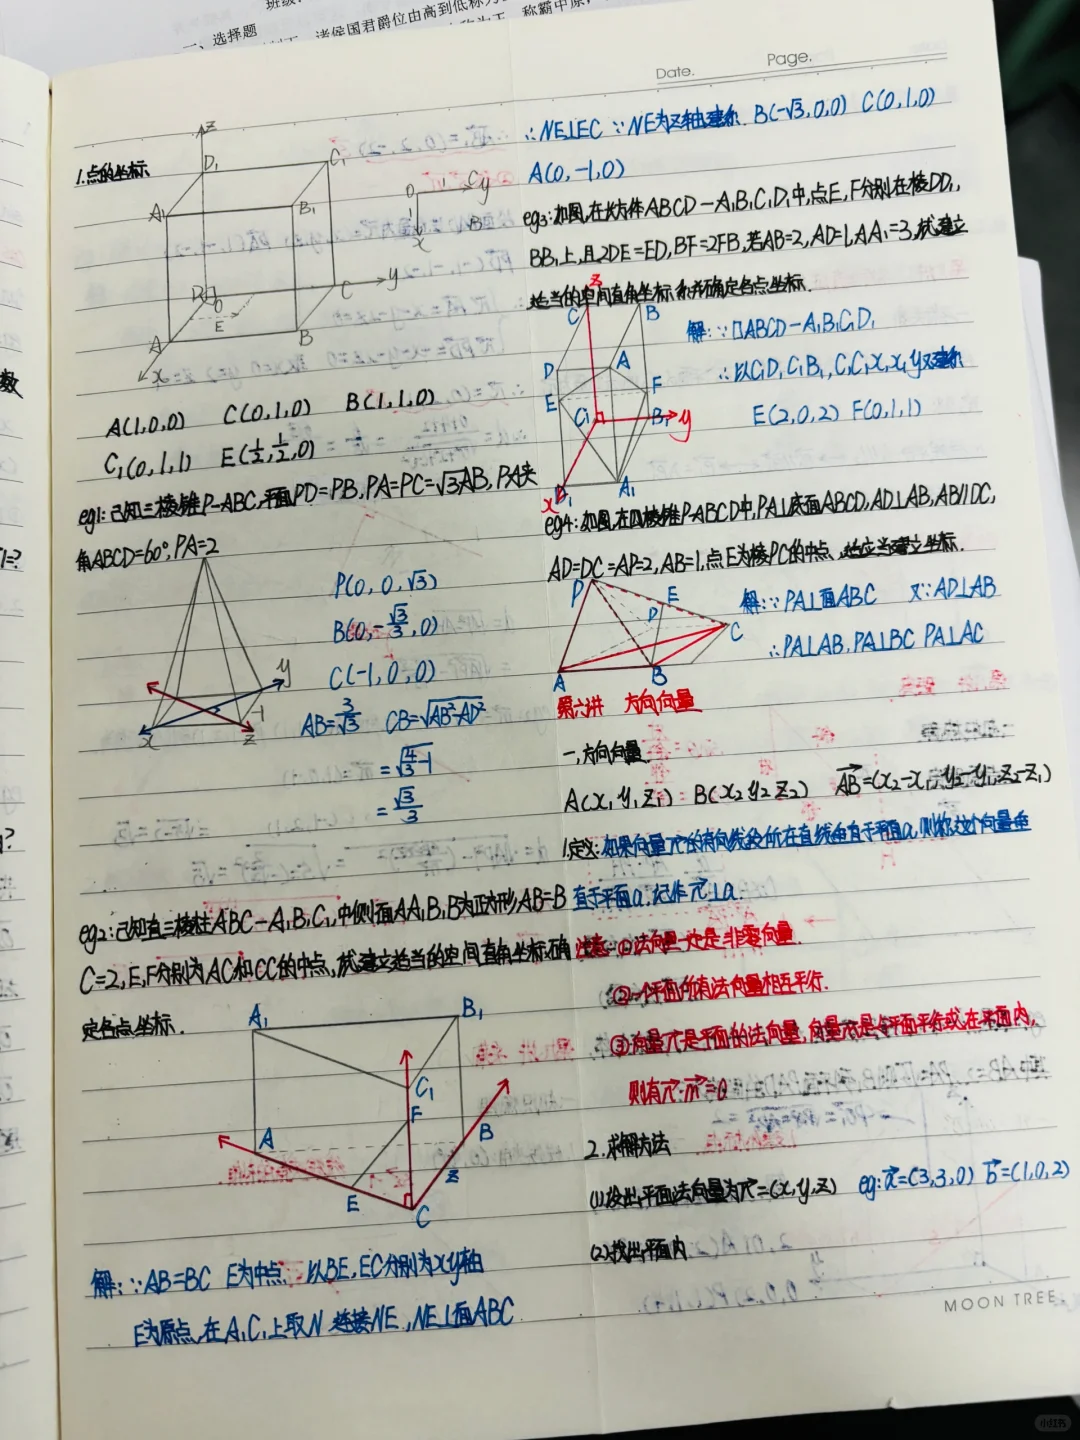 班级:
一、选择题
诸侯国君爵位由高到低称为
称霸中原,
Date.
Page.
1.点的坐标
z
D₁
C₁
A₁
B₁
D
O
C
y
E
A
B
x
O
C y
B
x
A(1,0,0) C(0,1,0) B(1,1,0)
C₁(0,1,1) E(½,½,0)
eg1:已知三棱锥P-ABC,平面PD=PB,PA=PC=√3AB,PA夹
角ABCD=60°,PA=2
P(0,0,√3)
B(0,-√3/3,0)
C(-1,0,0)
AB=3/√3 CB=√AB²-AD²
=√4/3-1
=√3/3
y
-1
x
z
eg2:已知直三棱柱ABC-A₁B₁C₁,中侧面AA₁B₁B为正方形,AB=B
C=2,E,F分别为AC和CC的中点,试建立适当的空间直角坐标系确
定各点坐标.
A₁
B₁
C₁
F
A
B
E
z
C
解:∵AB=BC E为中点 以BE,EC分别为xy轴
E为原点,在A₁C₁上取N 连接NE,NE⊥面ABC
∴NE⊥EC ∵NE为Z轴建系 B(-√3,0,0) C(0,1,0)
A(0,-1,0)
eg3:如图,在长方体ABCD-A₁B₁C₁D₁中,点E,F分别在棱DD₁,
BB₁上,且2DE=ED₁,BF=2FB₁,若AB=2,AD=1,AA₁=3,试建立
适当的空间直角坐标系并确定各点坐标.
z
C
B
D
A
E
F
C₁
B₁
y
x
D₁
A₁
解:∵口ABCD-A₁B₁C₁D₁
∴以C₁D₁,C₁B₁,C₁C,x,y,z建系
E(2,0,2) F(0,1,1)
eg4:如图,在四棱锥P-ABCD中,PA⊥底面ABCD,AD⊥AB,AB//DC,
AD=DC=AP=2,AB=1,点E为棱PC的中点,适应当建立坐标.
P
E
D
C
A
B
解:∵PA⊥面ABC 又∵AD⊥AB
∴PA⊥AB,PA⊥BC PA⊥AC
第六讲 方向向量
一,方向向量
A(x₁y₁z₁) B(x₂y₂z₂) AB=(x₂-x₁,y₂-y₁,z₂-z₁)
1.定义:如果向量n的有向线段所在直线垂直于平面α,则称这个向量垂
直于平面α.记作n⊥α.
注意:①法向量一定是非零向量.
②一个平面所有法向量相互平行.
③向量n是平面的法向量,向量m是与平面平行或在平面内,
则有n·m=0
2.求解方法
(1)设出平面法向量为n=(x,y,z) eg:a=(3,3,0) b=(1,0,2)
(2)找出平面内
MOON TREE
小红书